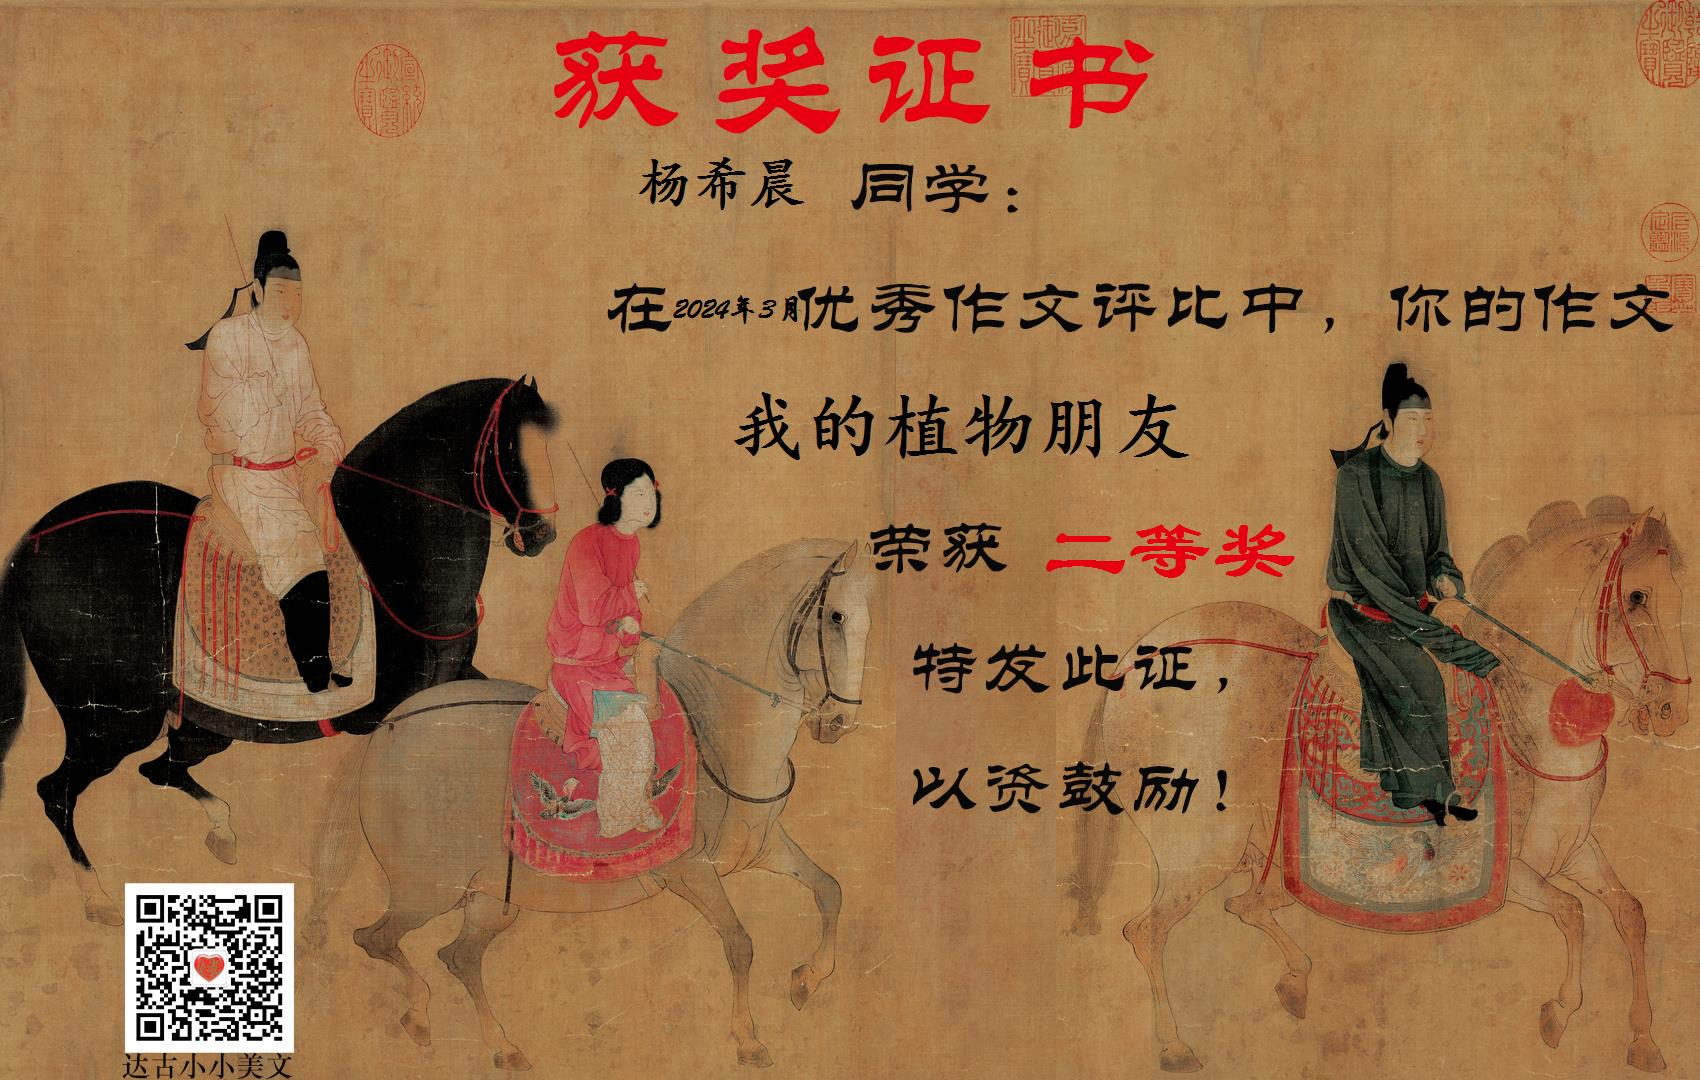 获奖证书
杨希晨 同学：
在2024年3月优秀作文评比中，你的作文
我的植物朋友
荣获 二等奖
特发此证，
以资鼓励！
达古小小美文